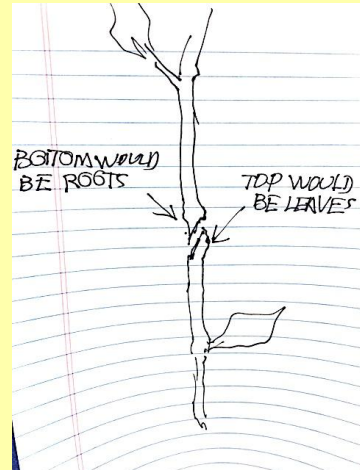 BOTTOM WOULD
BE ROOTS
TOP WOULD
BE LEAVES